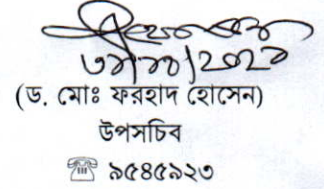 (ড. মোঃ ফরহাদ হোসেন)
উপসচিব
☎ ৯৫৪৫৯২৩